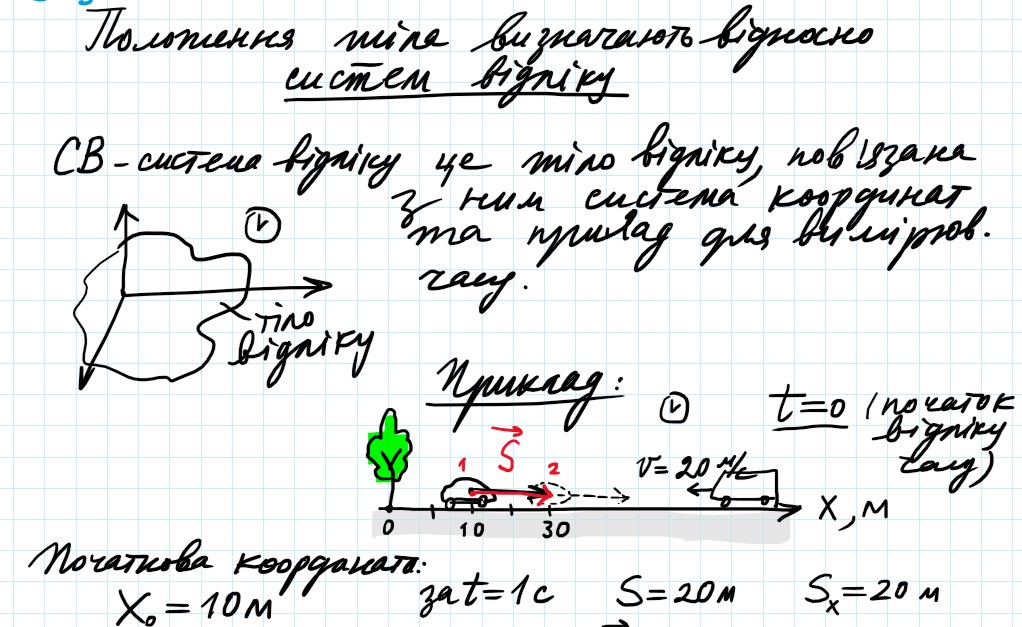 Положення тіла визначають відносно
систем відліку
СВ - система відліку це тіло відліку, пов'язана
з ним система координат
та прилад для вимірюв.
часу.
тіло
відліку
Приклад:
t=0 (початок
відліку
часу)
S
1 2
v=20 м/с
0 10 30
X, м
Початкова координата:
X₀ = 10 м
за t = 1 с S = 20 м Sₓ = 20 м